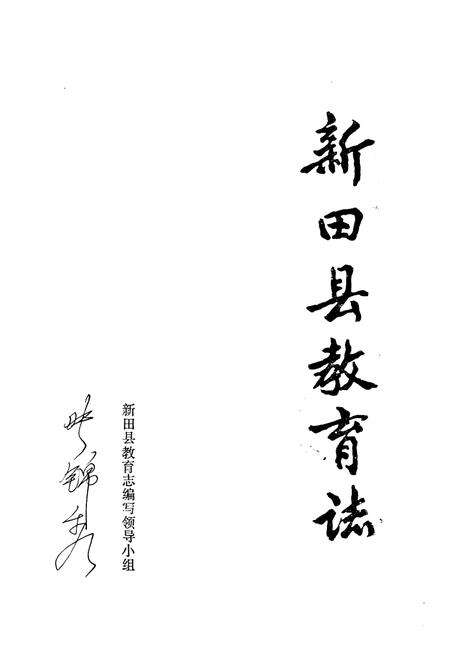 新田县教育誌
新田县教育志编写领导小组